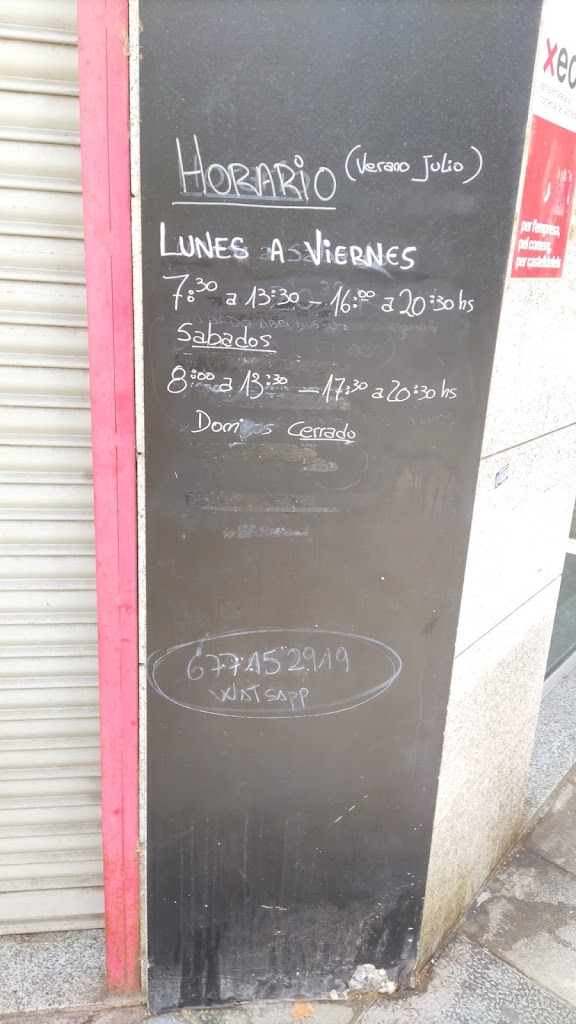 HORARIO (Verano Julio)
LUNES A VIERNES
7:30 a 13:30 - 16:00 a 20:30 hs
Sabados
8:00 a 13:30 - 17:30 a 20:30 hs
Cerrado
677152919
WATSAPP
per l'empresa,
pel comerç,
per castelldefels